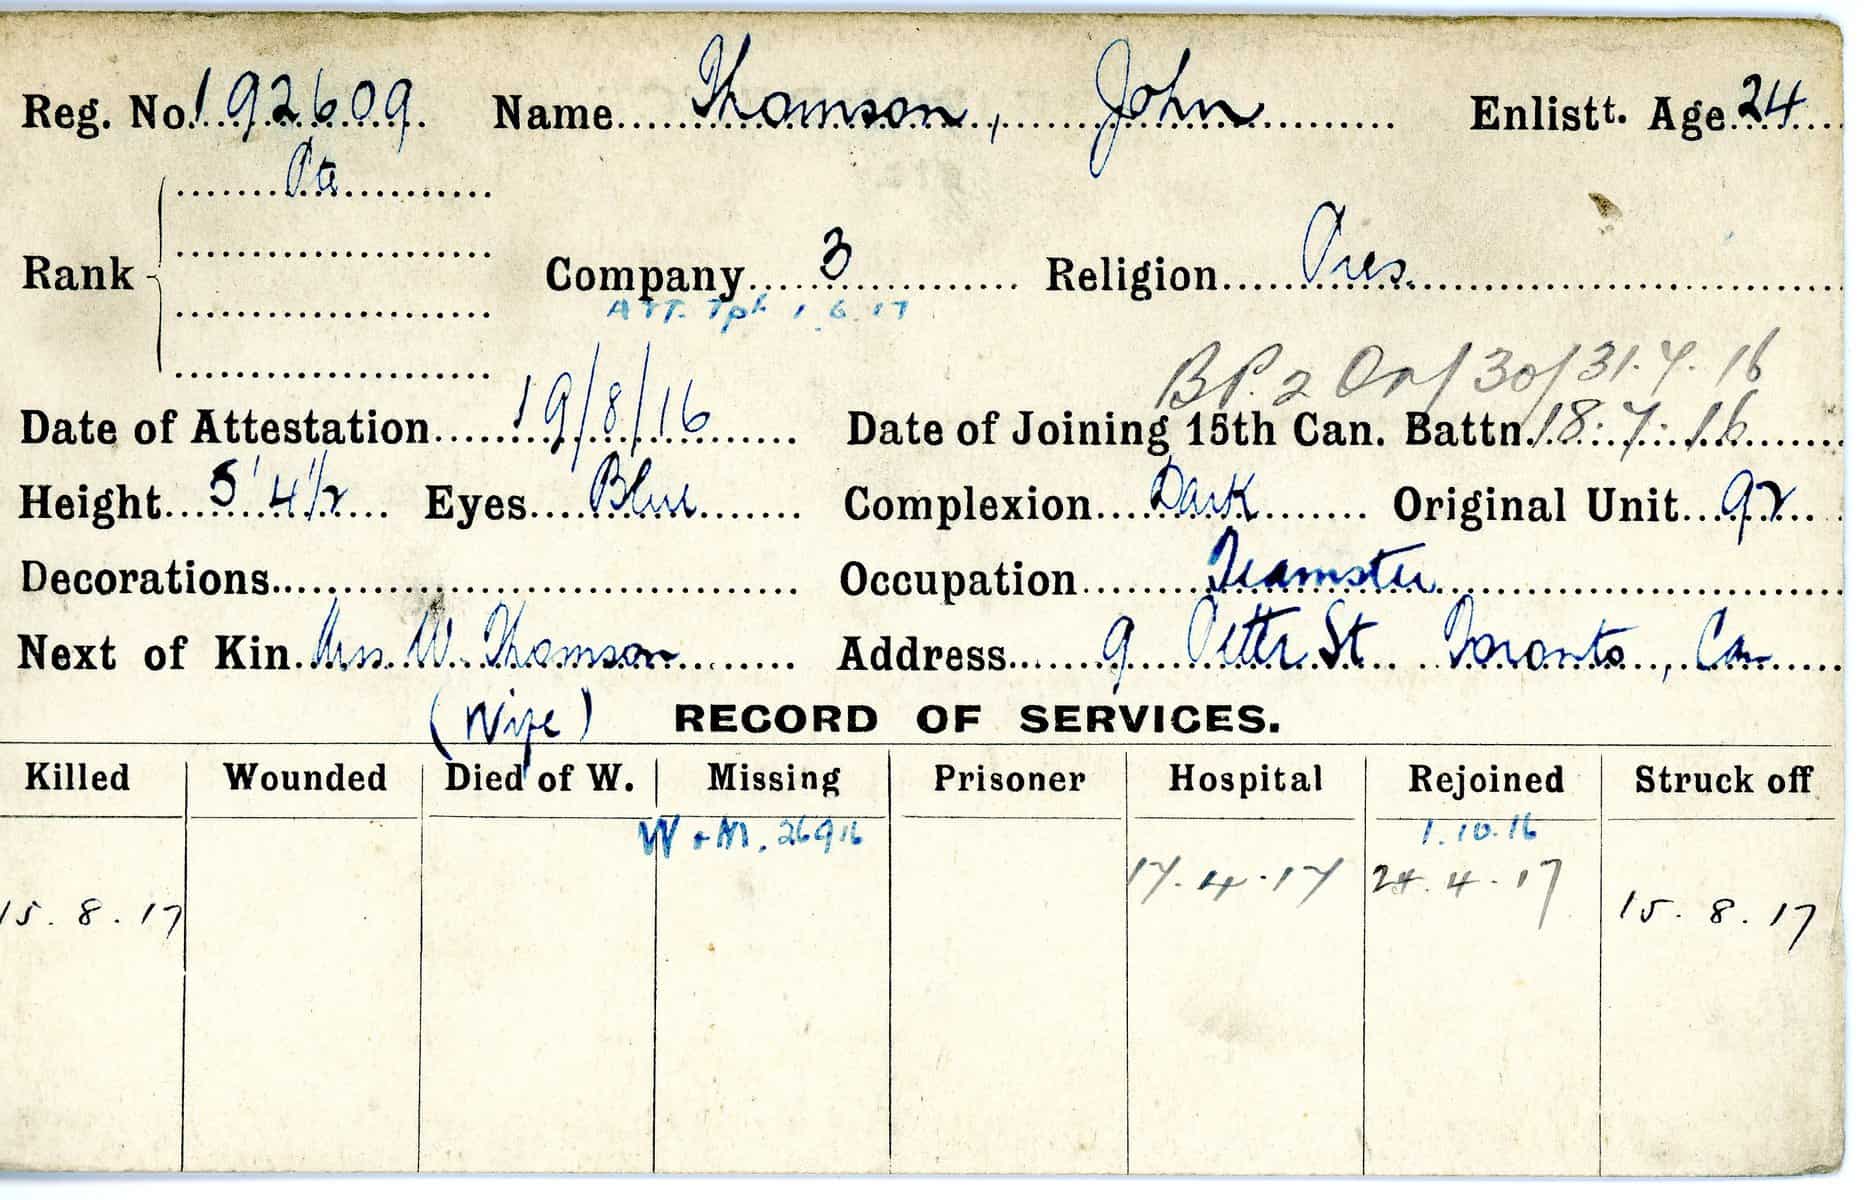 Reg. No. 192609 Name Thomson, John Enlistt. Age 24
Pte
Rank Company 3 Religion Pres.
Att. Tpt 1.6.17
B P. 2 Or/30/31.7.16
Date of Attestation 19/8/16 Date of Joining 15th Can. Battn. 18.7.16
Height 5' 4 1/2 Eyes Blue Complexion Dark Original Unit 92
Decorations Occupation Teamster
Next of Kin Mrs. W. Thomson Address 9 Peter St Toronto, Can
(Wife) RECORD OF SERVICES.
Killed Wounded Died of W. Missing Prisoner Hospital Rejoined Struck off
W & M. 26 9 16 1.10.16
17.4.17 24.4.17
15.8.17 15.8.17